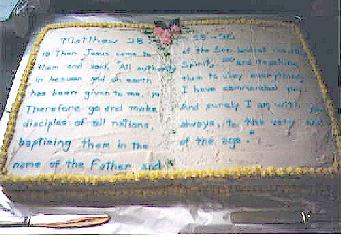 Matthew 28:
18 Then Jesus came to
them and said, "All authority
in heaven and on earth
has been given to me. 19
Therefore go and make
disciples of all nations,
baptizing them in the
name of the Father and
of the Son and of the Holy
Spirit, 20 and teaching
them to obey everything
I have commanded you.
And surely I am with you
always, to the very end
of the age."